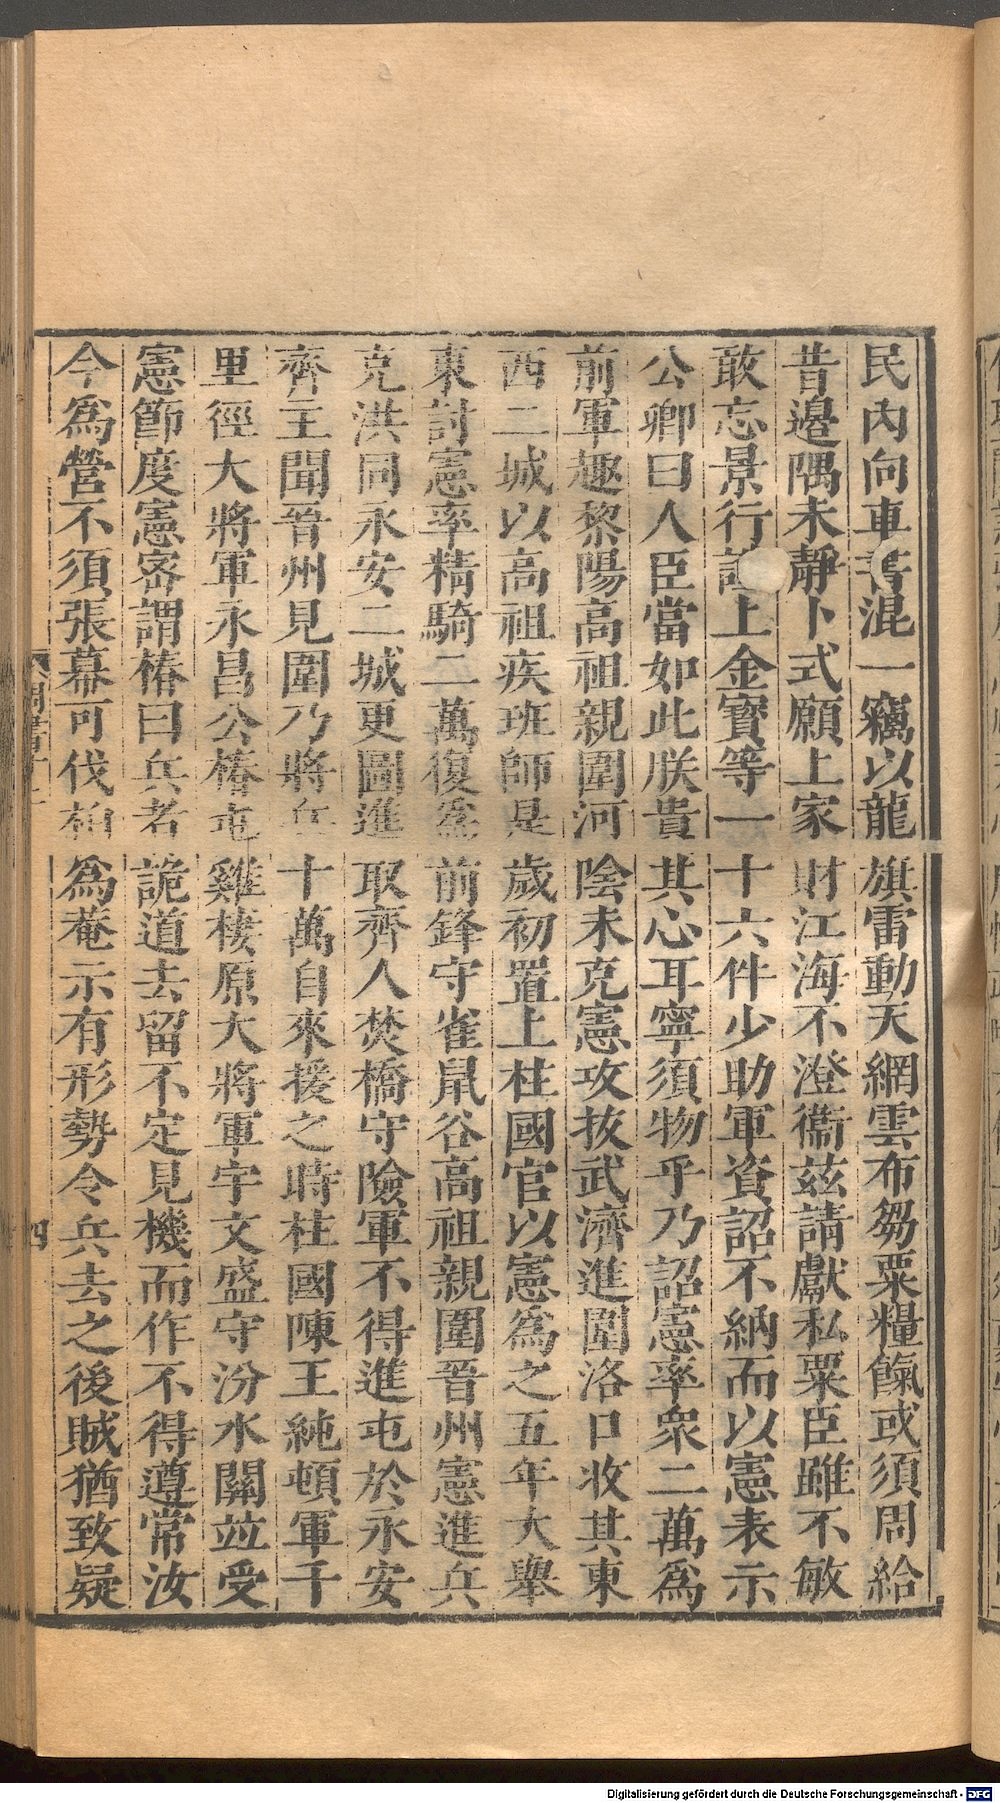 民內向車書混一竊以龍旗雷動天網雲布芻粟糧餼或須周給
昔邊隅未靜卜式願上家財江海不澄衞茲請獻私粟臣雖不敏
敢忘景行謹上金寶等一十六件少助軍資詔不納而以憲表示
公卿曰人臣當如此朕貴其心耳寧須物乎乃詔憲率衆二萬爲
前軍趣黎陽高祖親圍河陰未克憲攻拔武濟進圍洛口收其東
西二城以高祖疾班師是歲初置上柱國官以憲爲之五年大舉
東討憲率精騎二萬復爲前鋒守雀鼠谷高祖親圍晉州憲進兵
克洪同永安二城更圖進取齊人焚橋守險軍不得進屯於永安
齊主聞晉州見圍乃將兵十萬自來援之時柱國陳王純頓軍千
里徑大將軍永昌公椿屯雞棲原大將軍宇文盛守汾水關竝受
憲節度憲密謂椿曰兵者詭道去留不定見機而作不得遵常汝
今爲營不須張幕可伐柏爲菴示有形勢令兵去之後賊猶致疑
周書十二
四
Digitalisierung gefördert durch die Deutsche Forschungsgemeinschaft - DFG